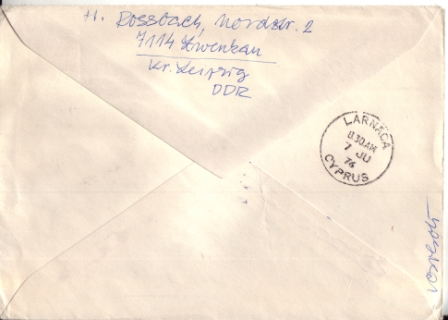 H. Rossbach, Nordstr. 2
7114 Zwenkau
Kr. Leipzig
DDR
LARNACA
8.30AM
7 JU
76
CYPRUS